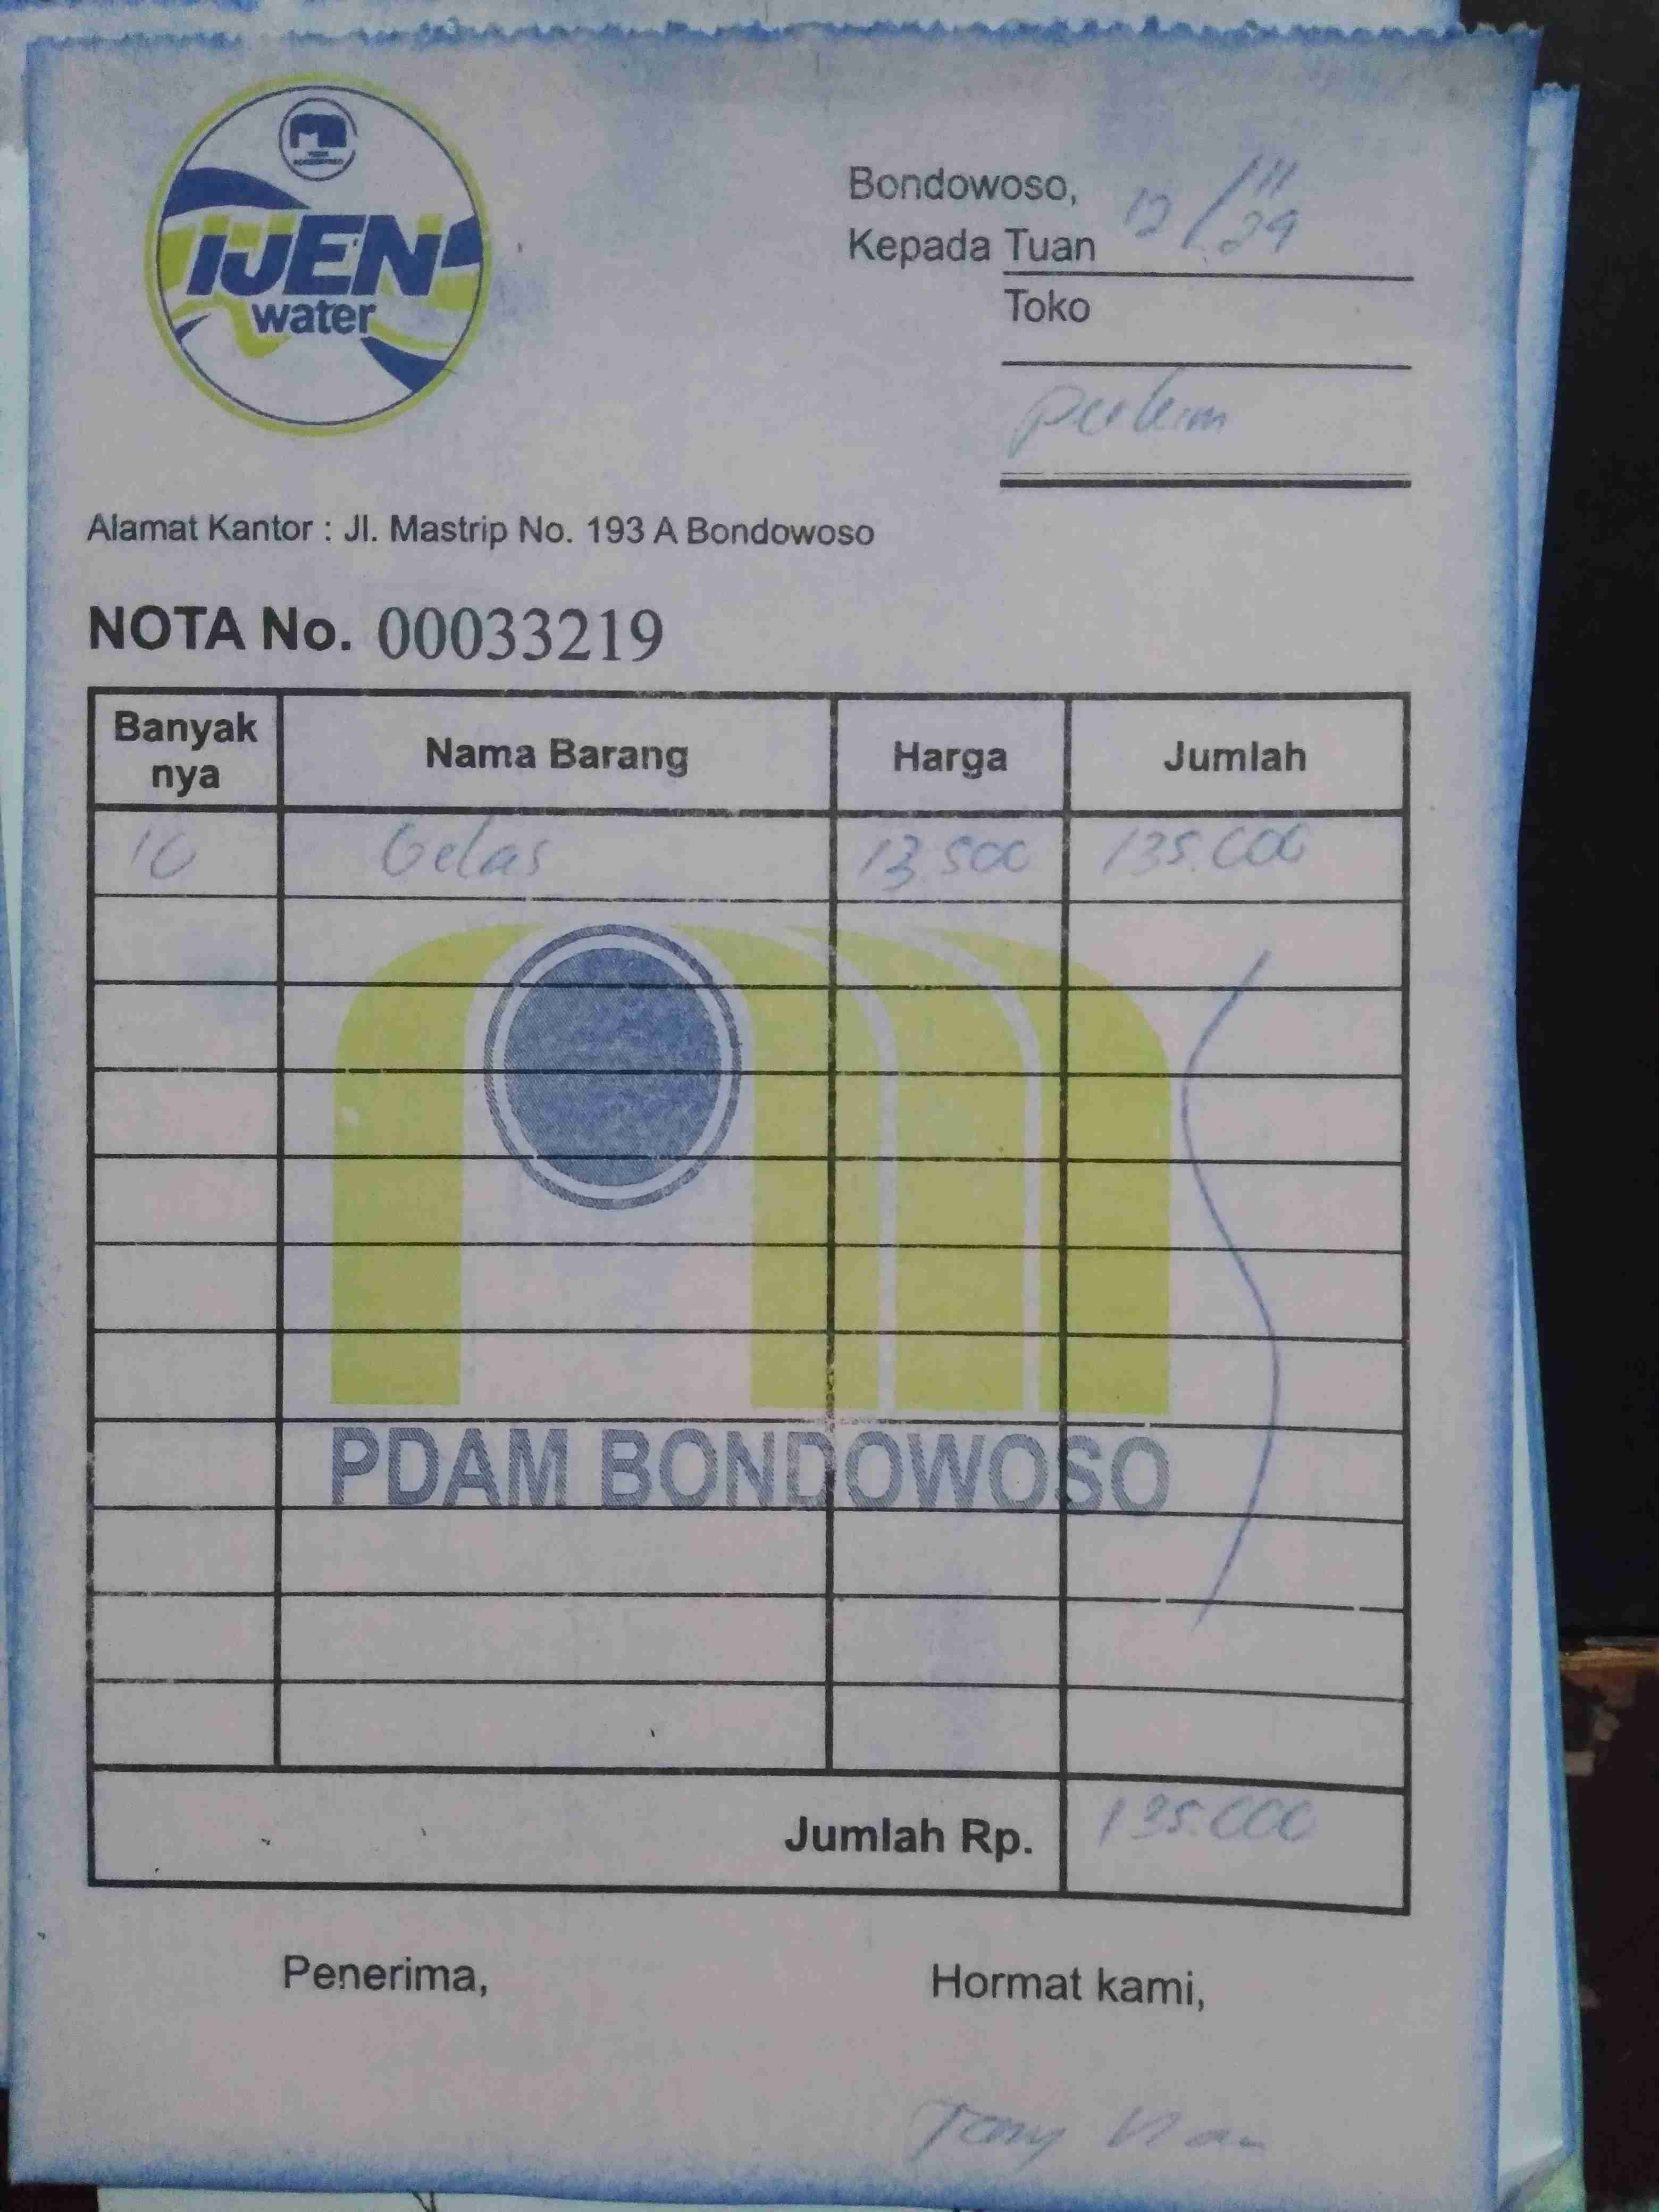 IJEN
water
Bondowoso, 12/111
Kepada Tuan 29
Toko
Alamat Kantor : Jl. Mastrip No. 193 A Bondowoso
NOTA No. 00033219
Banyak nya Nama Barang Harga Jumlah
10 Gelas 13.500 135.000
PDAM BONDOWOSO
Jumlah Rp. 135.000
Penerima, Hormat kami,
Tony